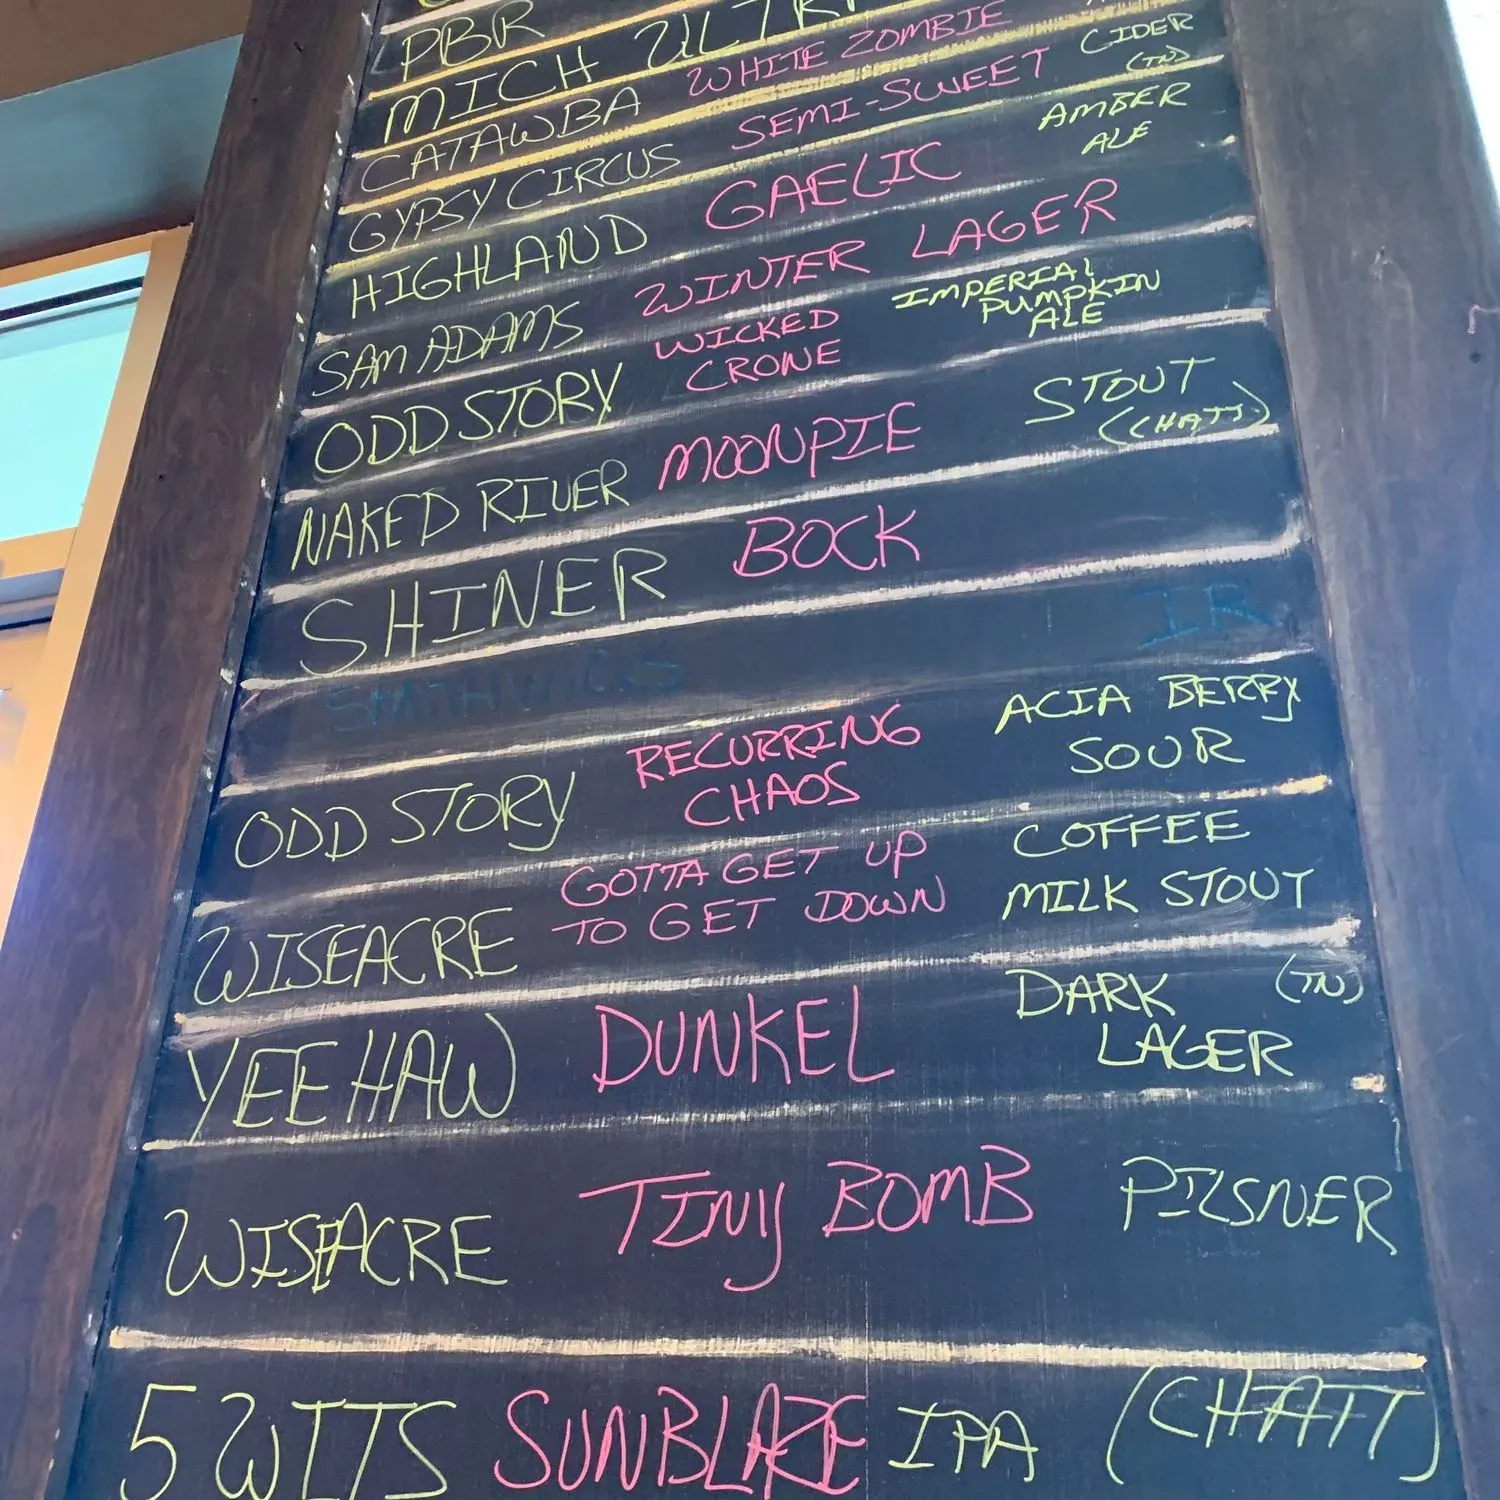 PBR
MICH ULTRA
CATAWBA WHITE ZOMBIE
GYPSY CIRCUS SEMI-SWEET CIDER (TN)
HIGHLAND GAELIC AMBER ALE
SAM ADAMS WINTER LAGER
ODD STORY WICKED CRONE IMPERIAL PUMPKIN ALE
NAKED RIVER MOONPIE STOUT (CHATT)
SHINER BOCK
SMITHWICKS IR
ODD STORY RECURRING CHAOS ACIA BERRY SOUR
WISEACRE GOTTA GET UP TO GET DOWN COFFEE MILK STOUT
YEE HAW DUNKEL DARK LAGER (TN)
WISEACRE TINY BOMB PILSNER
5 WITS SUNBLAZE IPA (CHATT)